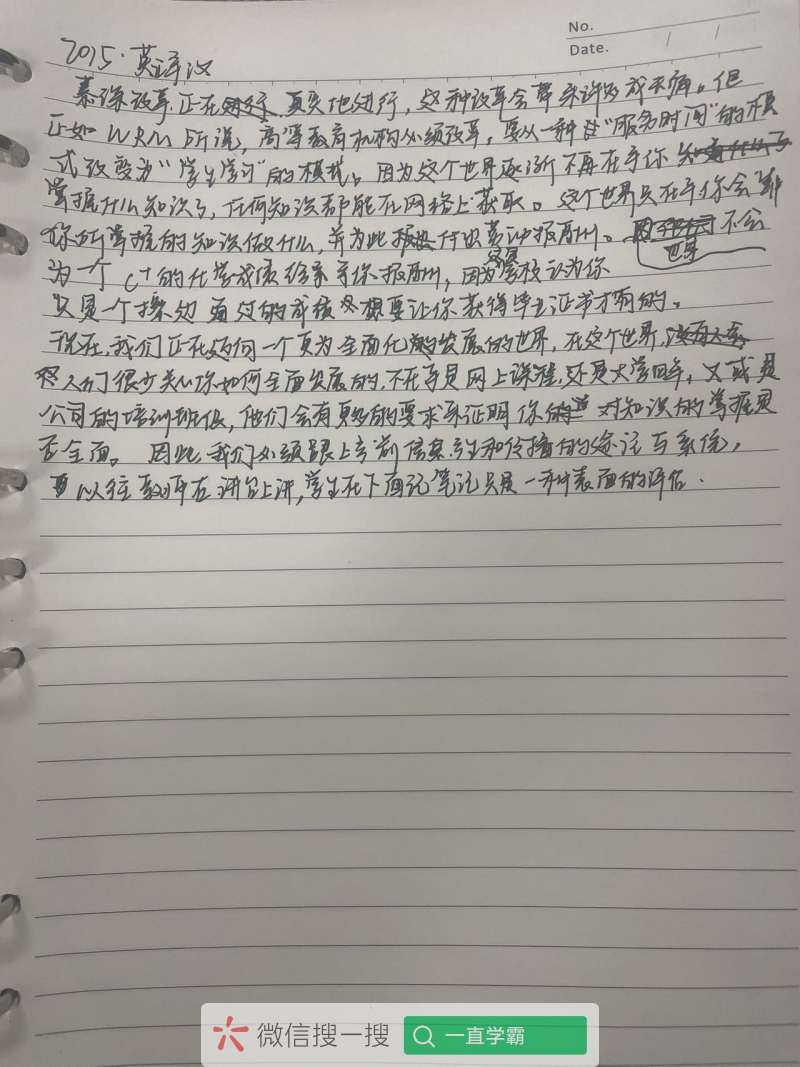 No.
Date. / /
2015·英译汉
慕课改革正在真实地进行，这种改革会带来许多成长痛。但
正如WRM所说，高等教育机构必须改革，要从一种"服务时间"的模
式改变为"学生学习"的模式。因为这个世界逐渐不再在乎你
掌握什么知识了，任何知识都能在网络上获取。这个世界只在乎你会
你所掌握的知识做什么，并为此付出报酬。不会
世界
为一个C+的化学成绩给予你报酬，因为学校认为你
只是一个擦边通过的成绩想要让你获得毕业证书才有的。
现在，我们正在迈向一个更为全面化发展的世界，在这个世界，
人们很少关心你如何全面发展的，不在乎是网上课程，还是大学四年，又或是
公司的培训班级，他们会有更多的要求来证明你对知识的掌握是
否全面。因此，我们必须跟上当前信息产生和传播的（标记与系统），
以往教师在讲台上讲，学生在下面记笔记只是一种表面的评估.
微信搜一搜
一直学霸